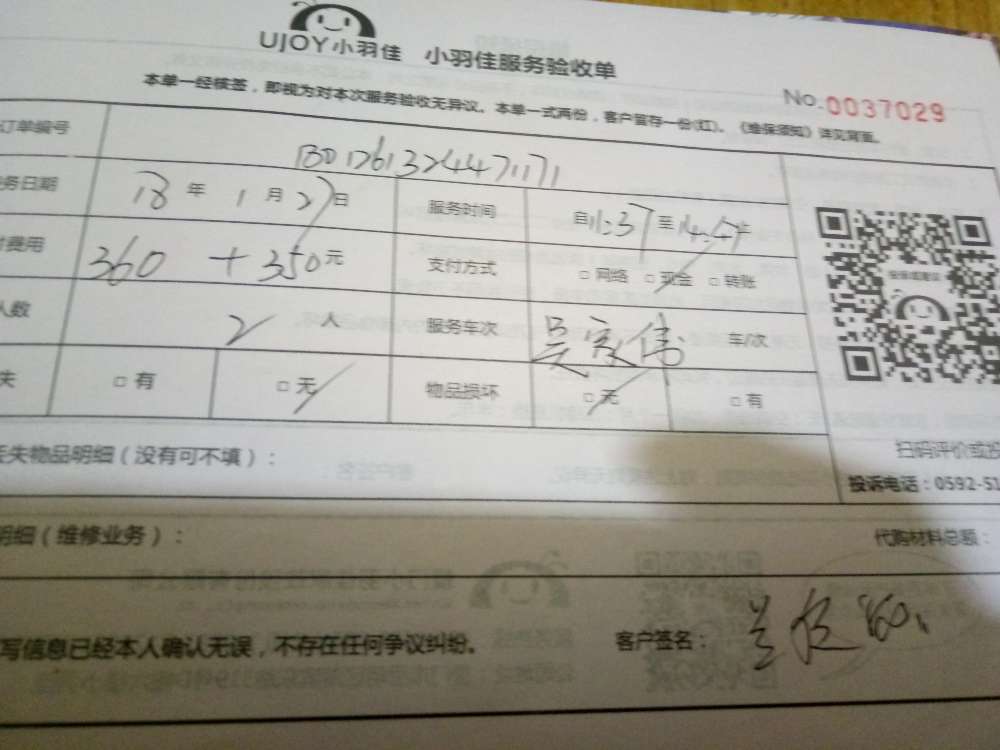 UJOY小羽佳 小羽佳服务验收单
本单一经核签，即视为对本次服务验收无异议。本单一式两份，客户留存一份(红)。《维保须知》详见背面。
No.0037029
订单编号
务日期 18年1月27日 服务时间 自11:37至
费用 360+350元 支付方式 □网络 □现金 □转账
人数 2人 服务车次 车/次
失 □有 □无 物品损坏 □无 □有
失物品明细（没有可不填）：
扫码评价或投
投诉电话：0592-51
明细（维修业务）： 代购材料总额：
写信息已经本人确认无误，不存在任何争议纠纷。 客户签名：